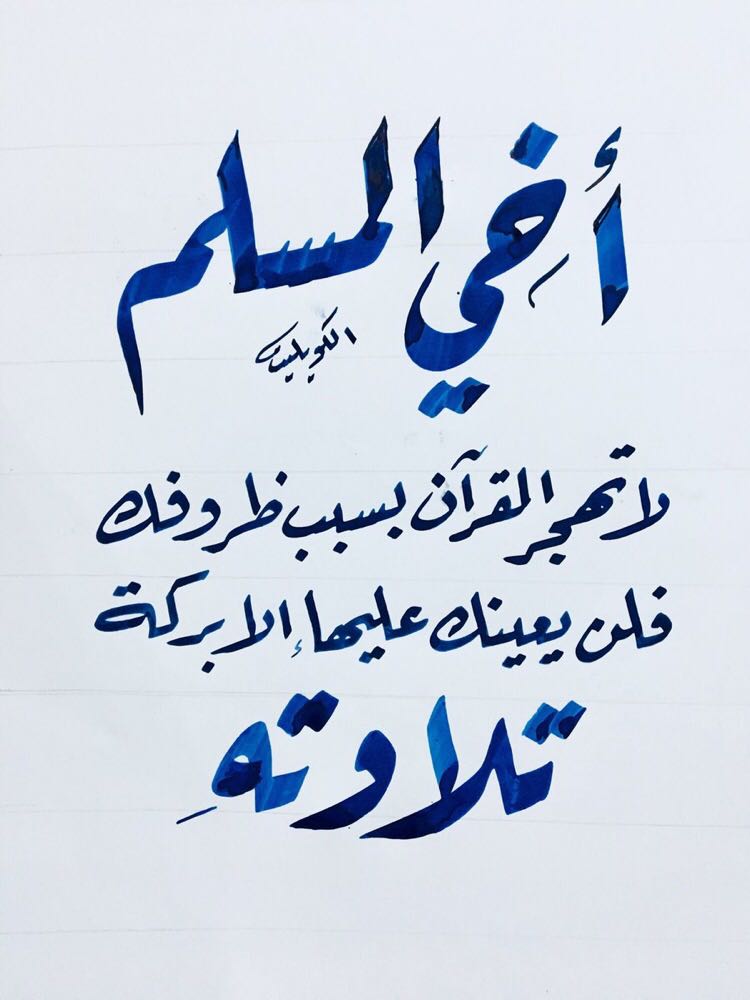 أخِي المسلم
الكويليت
لا تهجر القرآن بسبب ظروفك
فلن يعينك عليها إلا بركة
تلاوتهِ